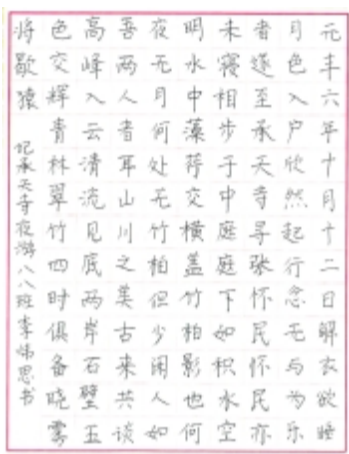 元丰六年十月十二日解衣欲睡
月色入户欣然起行念无与为乐
者遂至承天寺寻张怀民怀民亦
未寝相步于中庭庭下如积水空
明水中藻荇交横盖竹柏影也何
夜无月何处无竹柏但少闲人如
吾两人者耳山川之美古来共谈
高峰入云清流见底两岸石壁五
色交辉青林翠竹四时俱备晓雾
将歇猿 记承天寺夜游八八班李炜思书